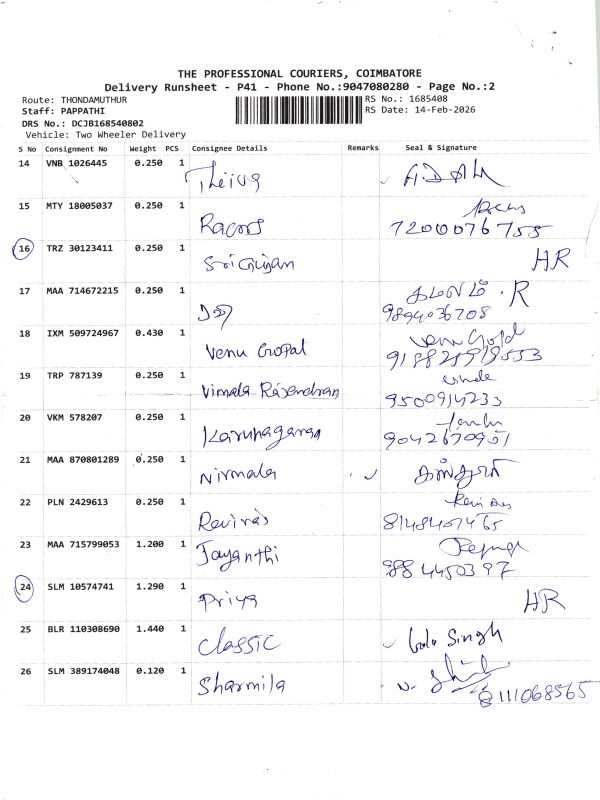 THE PROFESSIONAL COURIERS, COIMBATORE
Delivery Runsheet - P41 - Phone No.:9047080280 - Page No.:2
Route: THONDAMUTHUR RS No.: 1685408
Staff: PAPPATHI RS Date: 14-Feb-2026
DRS No.: DCJB168540802
Vehicle: Two Wheeler Delivery
S No Consignment No Weight PCS Consignee Details Remarks Seal & Signature
14 VNB 1026445 0.250 1
15 MTY 18005037 0.250 1
7200076755
16 TRZ 30123411 0.250 1 HR
17 MAA 714672215 0.250 1 R
9894036708
18 IXM 509724967 0.430 1 Venu Gopal
19 TRP 787139 0.250 1 Vimala Rajendran
9500914233
20 VKM 578207 0.250 1 Karunagaran
21 MAA 870801289 0.250 1 Nirmala
22 PLN 2429613 0.250 1
8148407465
23 MAA 715799053 1.200 1 Jayanthi
9884450397
24 SLM 10574741 1.290 1 Priya HR
25 BLR 110308690 1.440 1 Classic Singh
26 SLM 389174048 0.120 1 Sharmila
8111068565